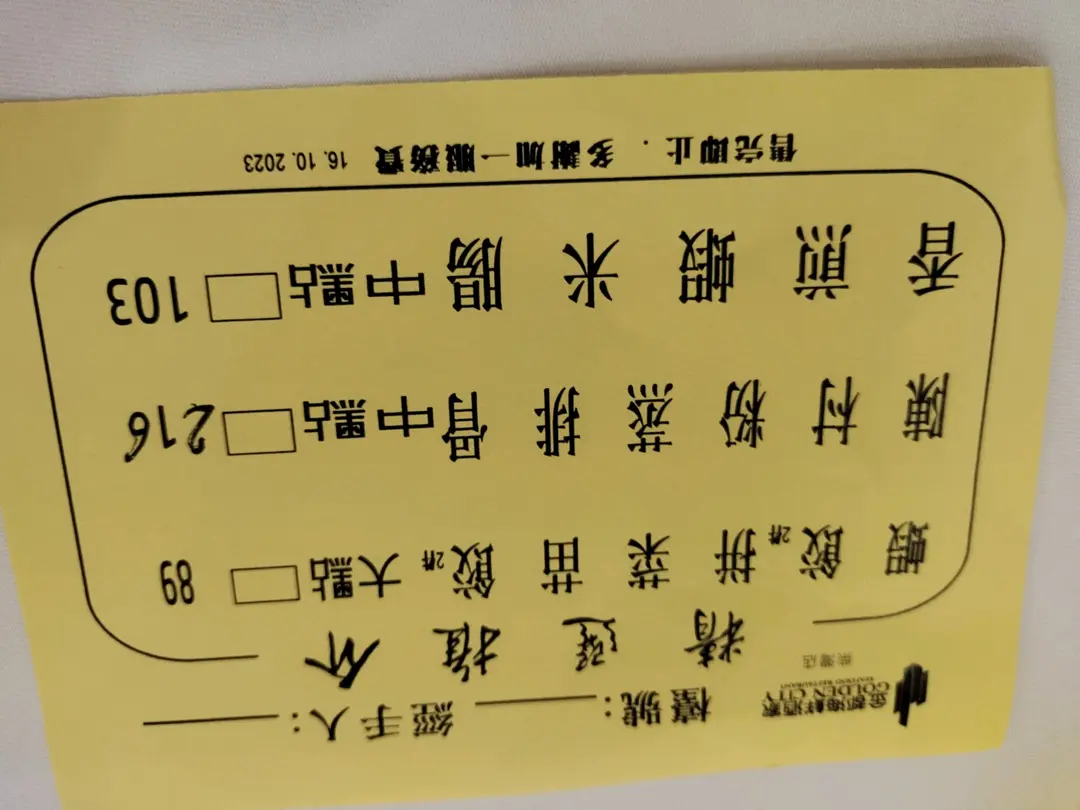 金都海鮮酒家
GOLDEN CITY
SEAFOOD RESTAURANT
檯號：＿＿＿ 經手人：＿＿＿
精選推介
蝦餃2件拼菜苗餃2件 大點 □ 89
陳村粉蒸排骨 中點 □ 216
香煎蝦米腸 中點 □ 103
售完即止．多謝加一服務費 16. 10. 2023